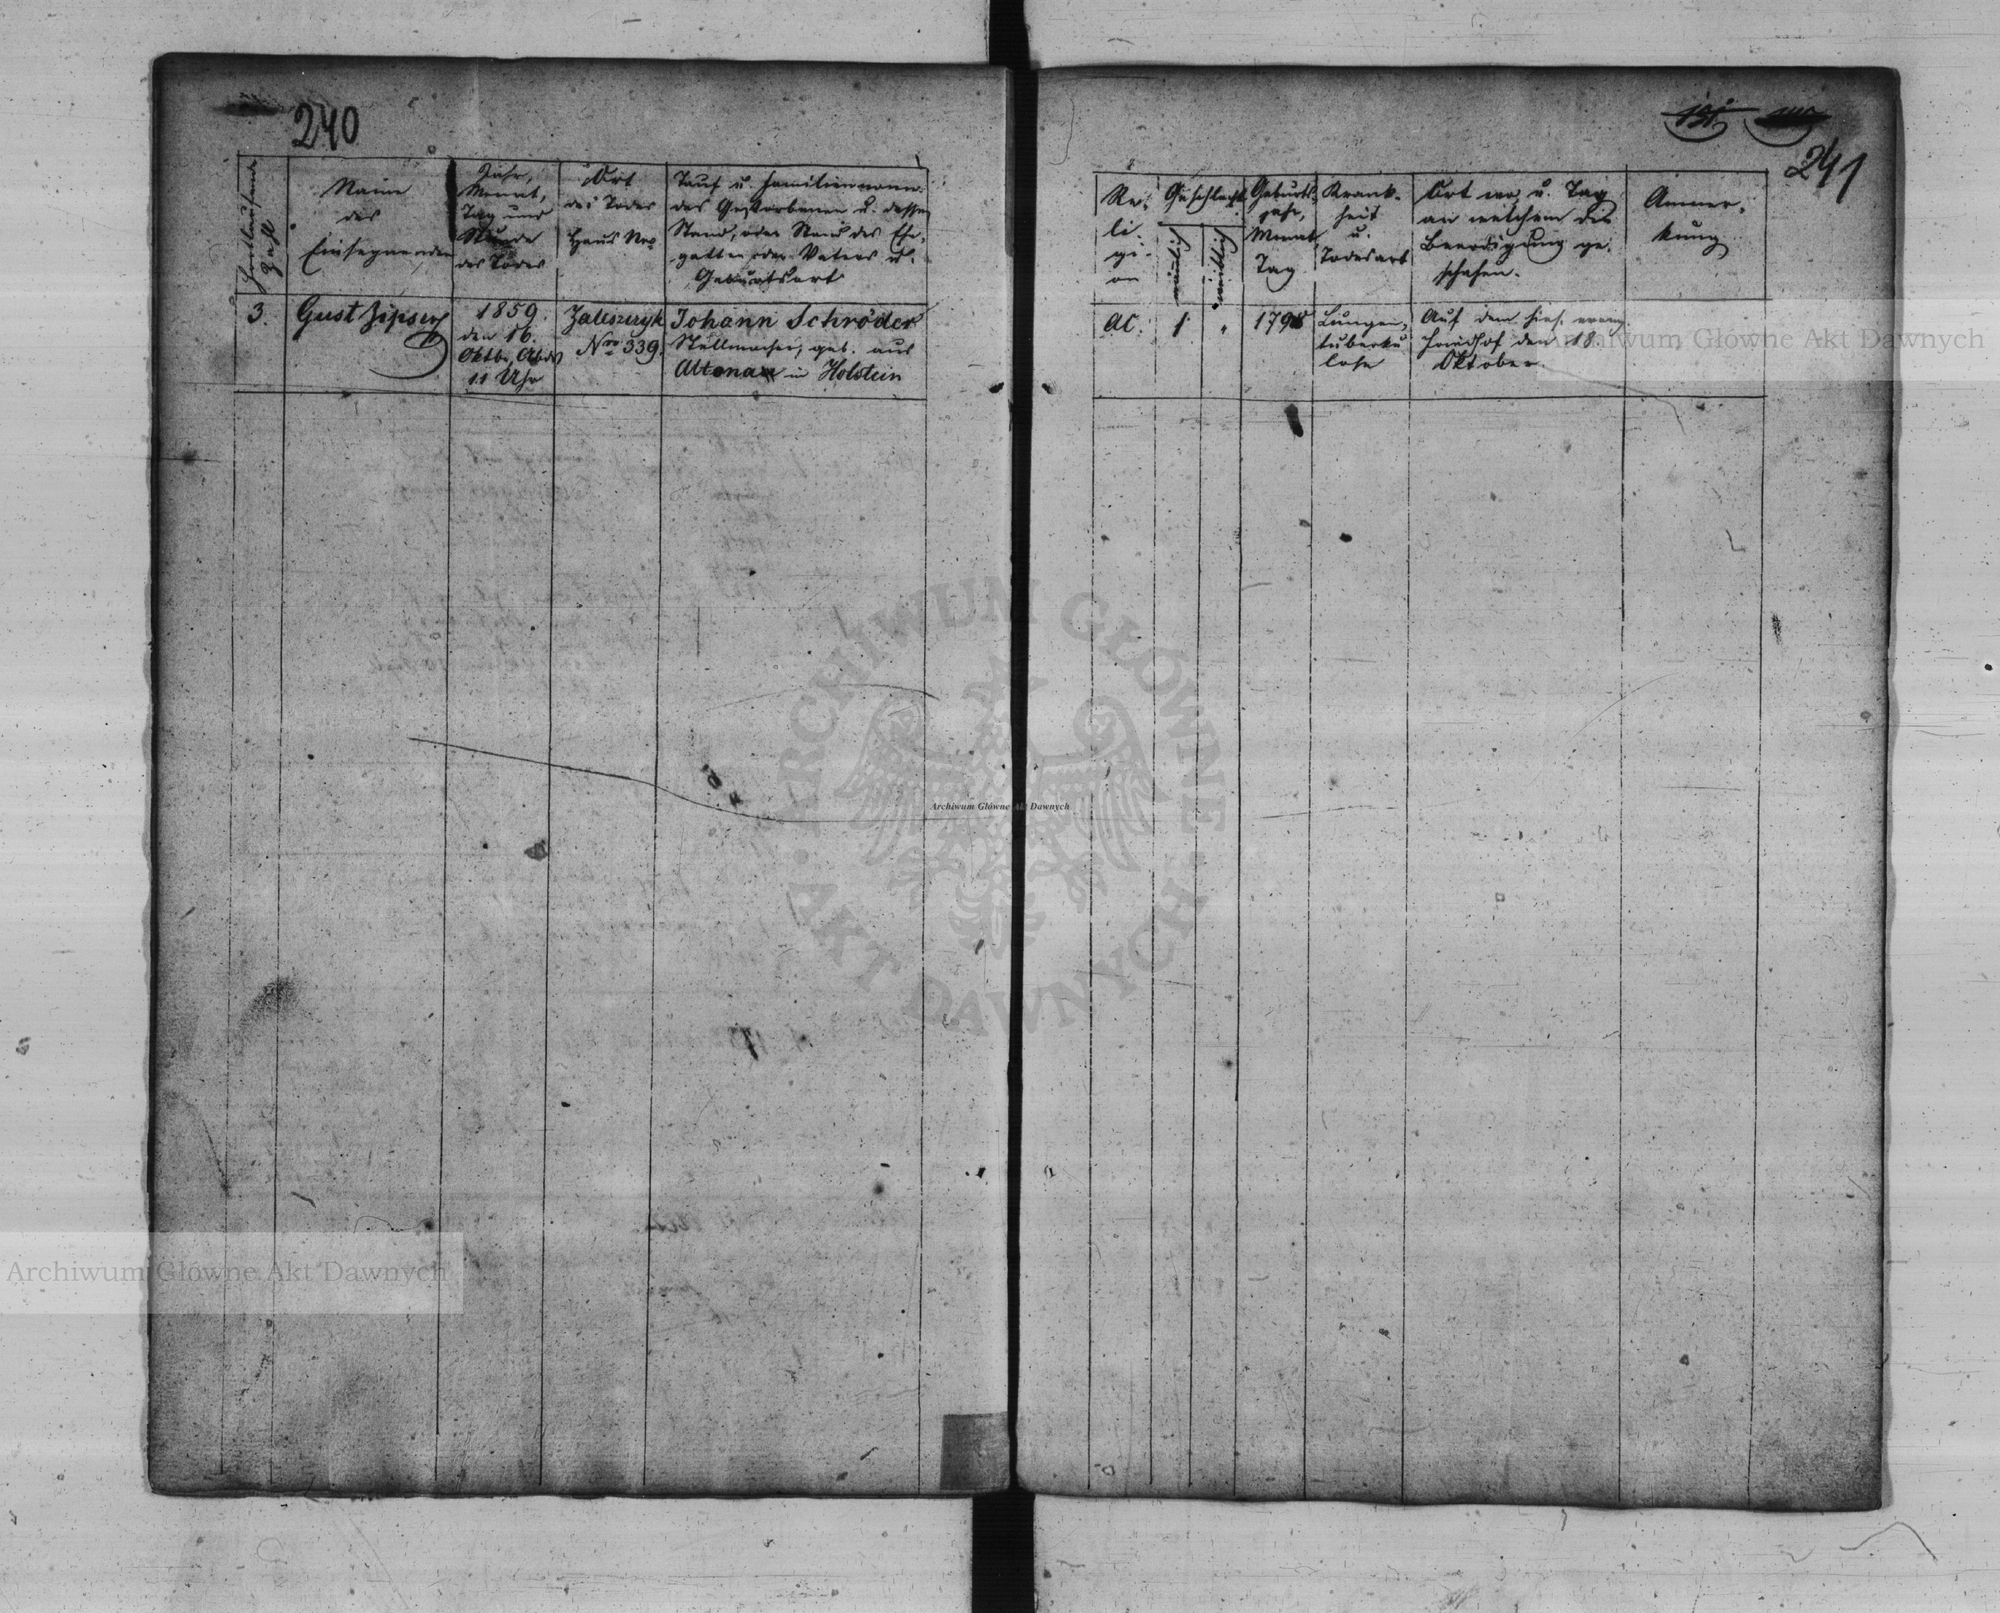 240
Fortlaufende Zahl
Name
des
Einsegnenden
Jahr,
Monat,
Tag und
Stunde
des Todes
Ort
des Todes
Haus Nro
Tauf u. Familienname
des Gestorbenen u. dessen
Stand, oder Stand des Ehe-
gatten oder Vaters u.
Geburtsort
3.
Gust Zipser
1859.
den 16.
Oktbr, Abds
11 Uhr
Zaleszczyk
Nro 339.
Johann Schröder
Stellmacher, geb. aus
Altona in Holstein
241
Re-
li-
gi-
on
Geschlecht
Geburts-
jahr,
Monat,
Tag
Krank-
heit
u.
Todesart
Ort wo, u. Tag
an welchem die
Beerdigung ge-
schehen.
Anmer-
kung
AC.
1
"
Lungen-
tuberku
lose
Auf dem hies. evang
Friedhof den 18.
Oktober.
Archiwum Główne Akt Dawnych
ARCHIWUM GŁÓWNE
AKT DAWNYCH
Archiwum Główne Akt Dawnych
Archiwum Główne Akt Dawnych